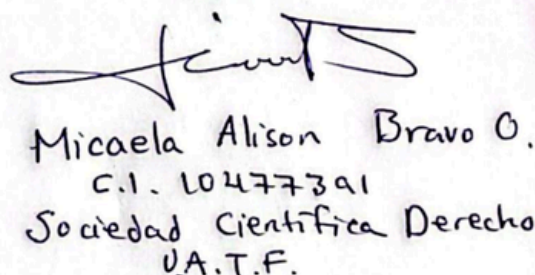 Micaela Alison Bravo O.
C.I. 10477391
Sociedad Científica Derecho
U.A.T.F.